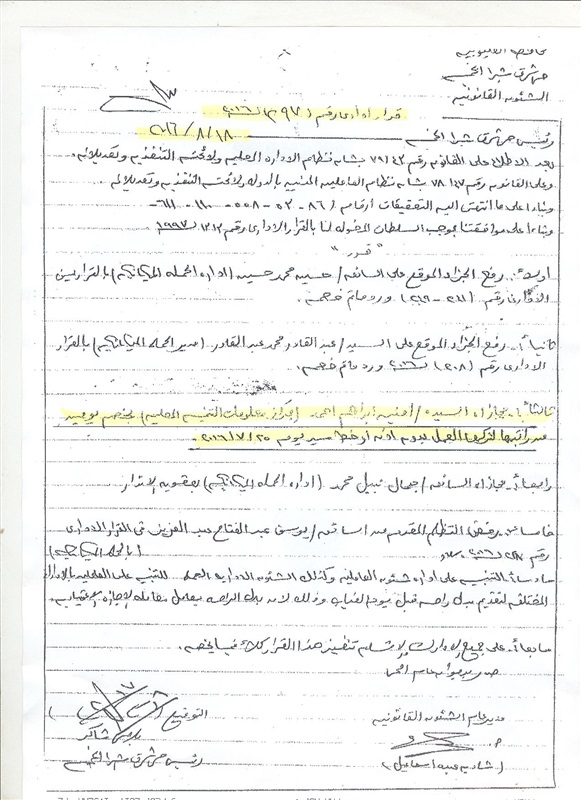 محافظة القليوبية
حى شرق شبرا الخيمة
الشئون القانونية
قرار ادارى رقم ( ٣٩٧ ) لسنة ٢٠١٦
١٨ / ٨ / ٢٠١٦
رئيس حى شرق شبرا الخيمة
بعد الاطلاع على القانون رقم ٤٣ / ٧٩ بشأن نظام الادارة المحلية ولائحته التنفيذية وتعديلاته .
وعلى القانون رقم ٤٧ / ٧٨ بشأن نظام العاملين المدنيين بالدولة ولائحته التنفيذية وتعديلاته
وبناءا على ما انتهت اليه التحقيقات أرقام / ٨٦ - ٥٢ - ٥٥٨ - ١١٠ - ٦١١
وبناءا على موافقتنا بموجب السلطات المخولة لنا بالقرار الادارى رقم ١٢١٢ لسنة ١٩٩٧
" قرر "
أولاً :. رفع الجزاء الموقع على السائق / حسين محمد حسين ( ادارة الحملة الميكانيكية ) بالقرارين
الاداريين رقم ورد ماتم خصمه .
ثانياً :. رفع الجزاء الموقع على السيد / عبد القادر محمد عبد القادر ( مدير الحملة الميكانيكية ) بالقرار
الادارى رقم ( ٢٠٨ ) لسنة ٢٠١٦ ورد ماتم خصمه .
ثالثاً :. مجازاة السيدة / أمنية ابراهيم احمد ( مركز معلومات التنمية المحلية ) بخصم يومين
من راتبها لتركها العمل بدون اذن أو خط سير يوم ٢٥ / ٧ / ٢٠١٦ .
رابعاً :. مجازاة السائق / جمال نبيل محمد ( ادارة الحملة الميكانيكية ) بعقوبة الانذار
خامساً :. رفض التظلم المقدم من السائق / يوسف عبد الفتاح عبد العزيز فى القرار الادارى
رقم لسنة ٢٠١٦ ( بالحملة الميكانيكية )
سادساً :. التنبيه على ادارة شئون العاملين وكذلك الشئون الادارية بالحملة للتنبيه على العاملين بالادارات
المختلفة لتقديم بدل راحة قبل يوم الغياب وذلك لان بدل الراحة يعامل معاملة الاجازة الاعتيادية .
سابعاً :. على جميع الادارات والاقسام تنفيذ هذا القرار كلاً فيما يخصه .
مدير عام الشئون القانونية
( شادية عبده اسماعيل )
التوقيع (
رئيس حى شرق شبرا الخيمة